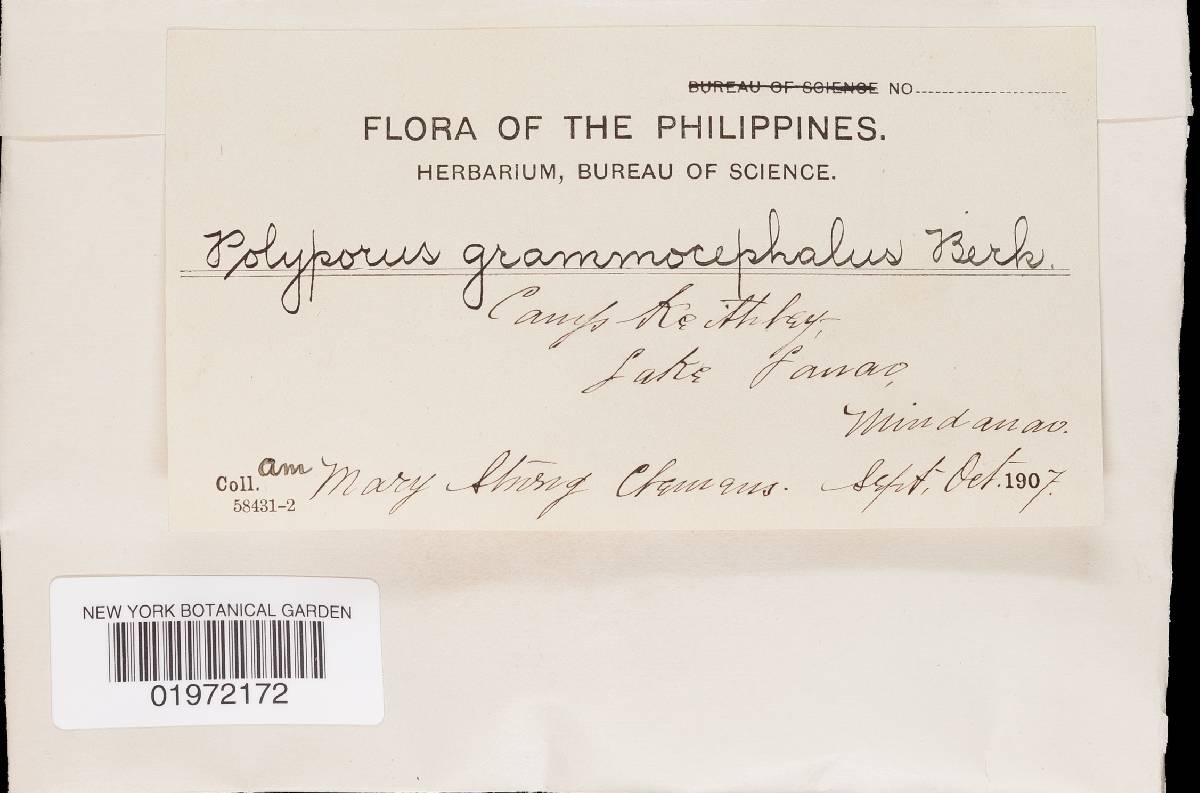 BUREAU OF SCIENCE NO
FLORA OF THE PHILIPPINES.
HERBARIUM, BUREAU OF SCIENCE.
Polyporus grammocephalus Berk.
Camp Keithley,
Lake Lanao,
Mindanao.
Coll. am Mary Strong Clemens. Sept, Oct. 1907.
58431-2
NEW YORK BOTANICAL GARDEN
01972172